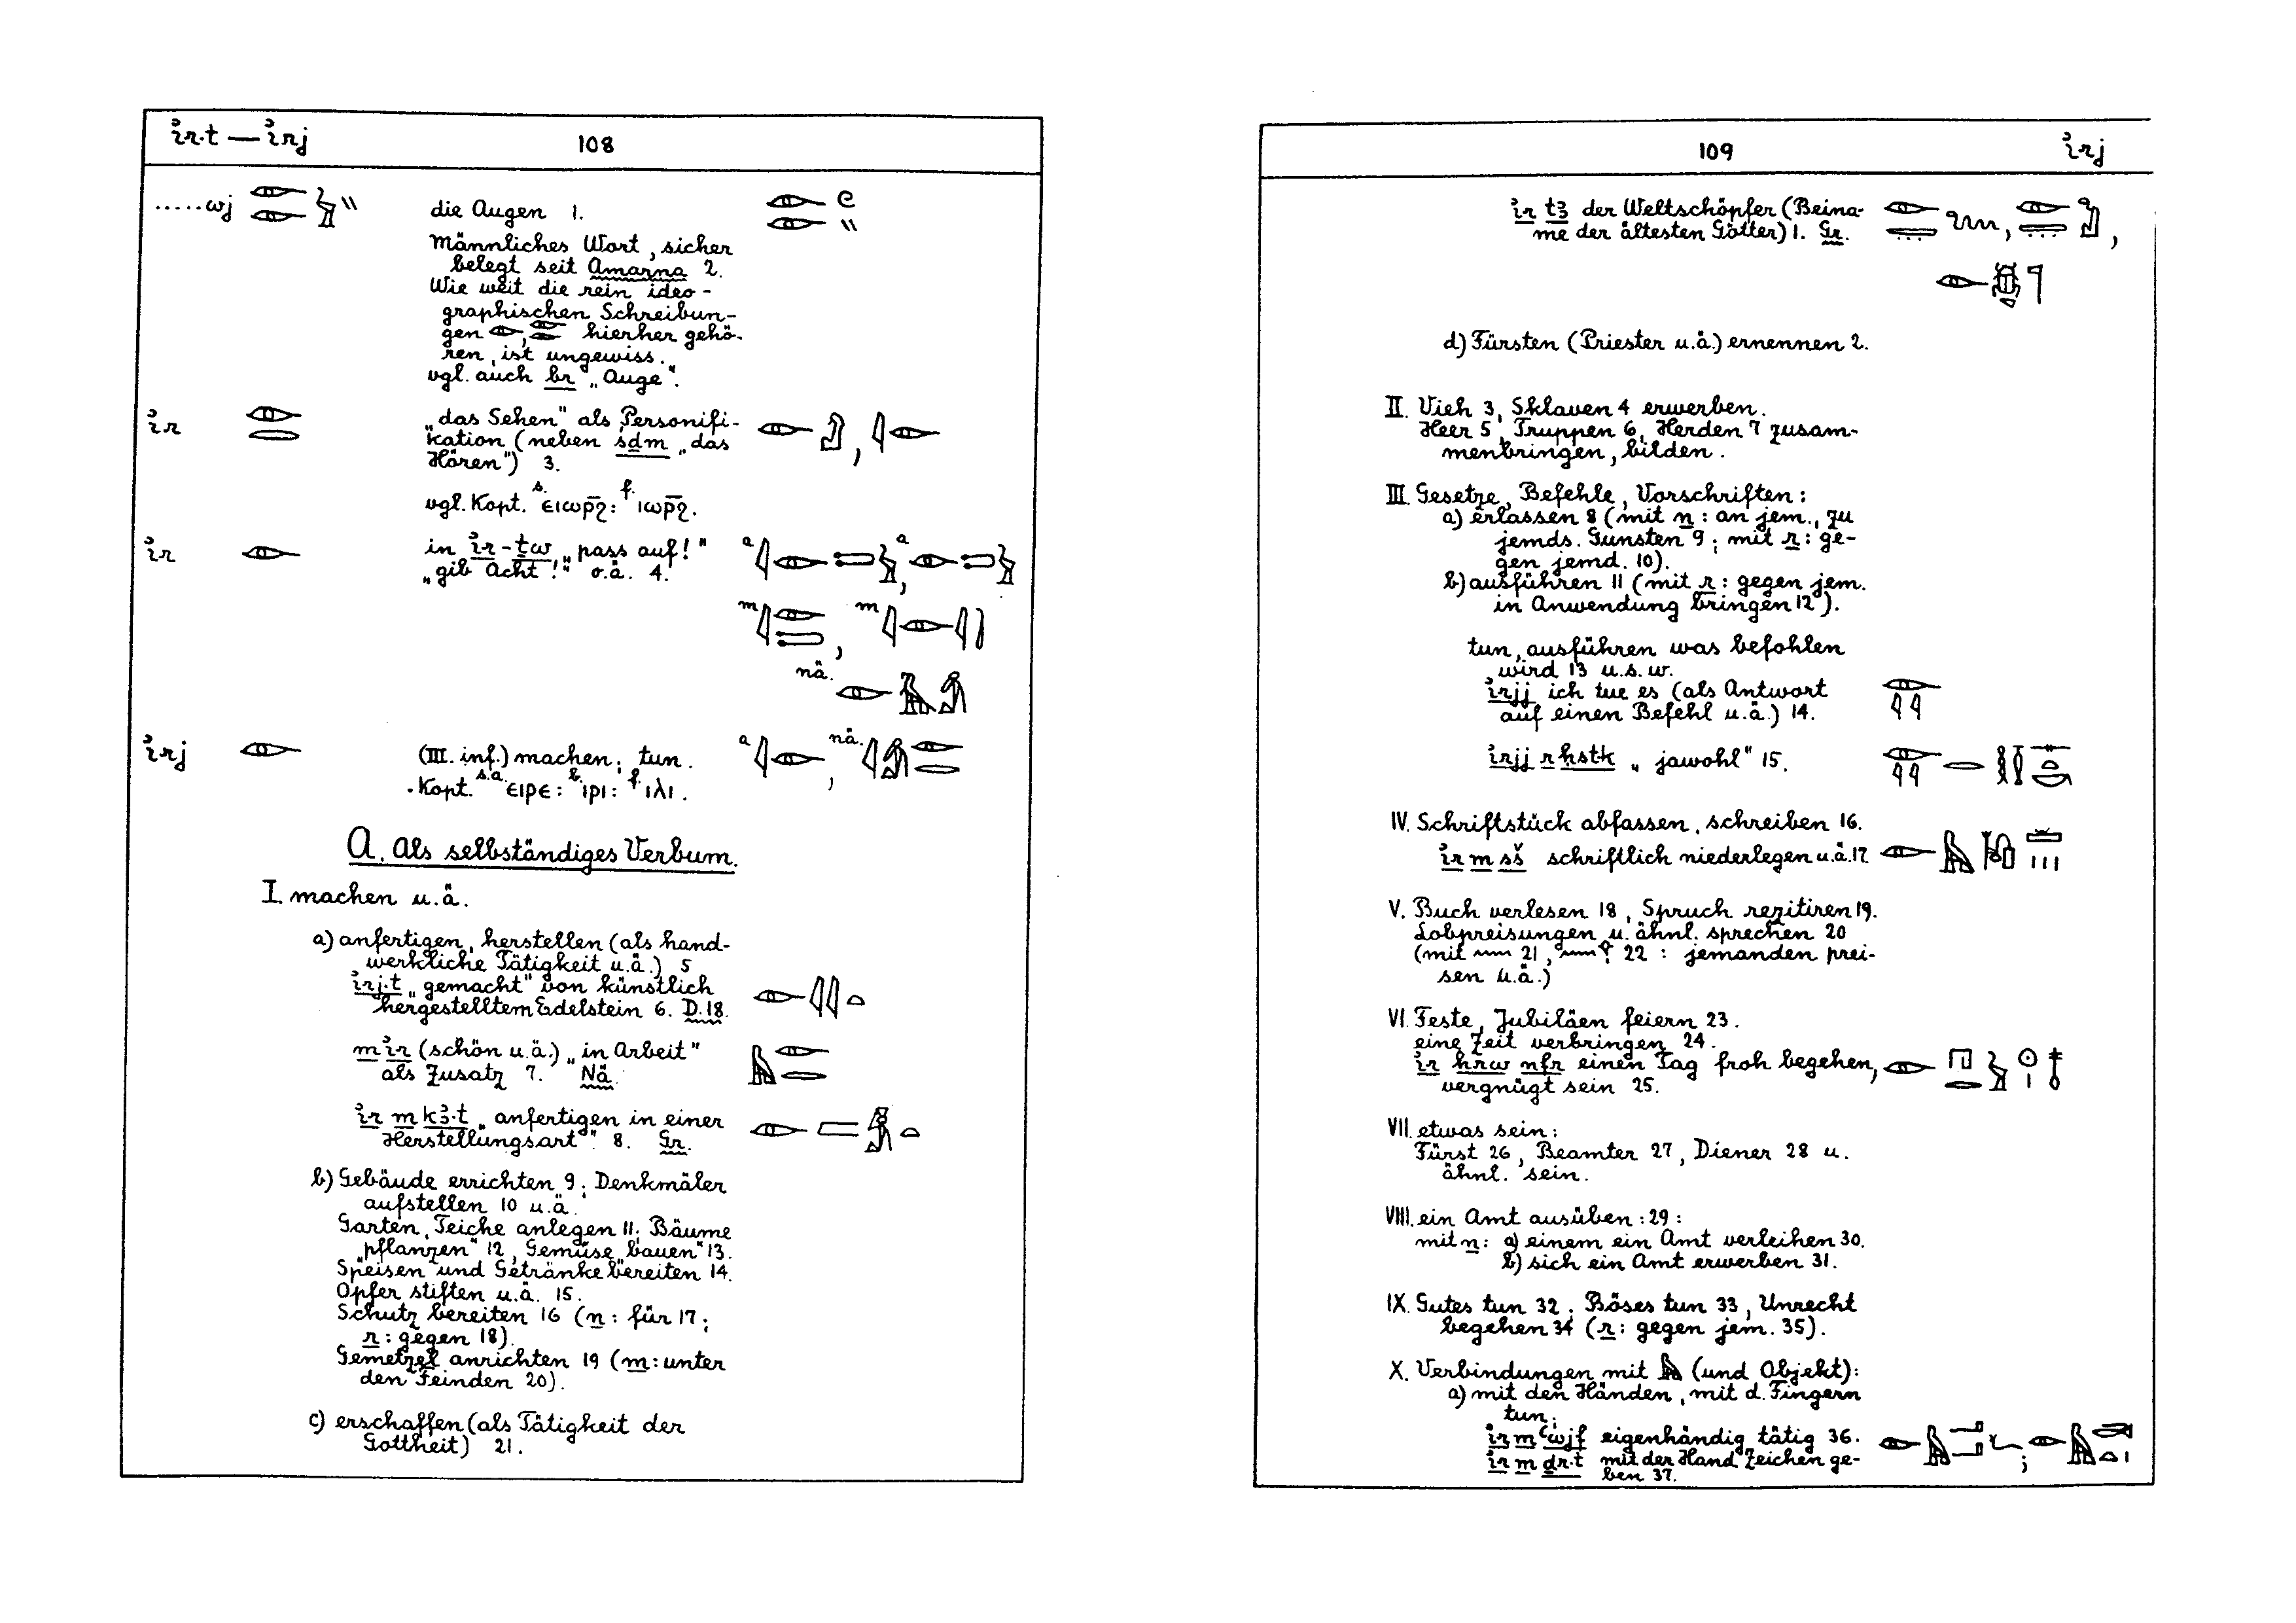 ı͗r.t — ı͗rj 108
.....wj die Augen 1.
Männliches Wort, sicher
belegt seit Amarna 2.
Wie weit die rein ideo-
graphischen Schreibun-
gen 𓁹, 𓁹𓁹 hierher gehö-
ren, ist ungewiss.
vgl. auch br „Auge".
ı͗r „das Sehen" als Personifi-
kation (neben sḏm „das
Hören") 3.
vgl. Kopt. s. ⲉⲓⲱⲣϩ̄: f. ⲓⲱⲣϩ̄.
ı͗r in ı͗r-ṯw „pass auf!"
„gib Acht!" o.ä. 4.
ı͗rj (III. inf.) machen; tun.
Kopt. s.a. ⲉⲓⲣⲉ: b. ⲓⲣⲓ: f. ⲓⲗⲓ.
A. Als selbständiges Verbum.
I. machen u.ä.
a) anfertigen, herstellen (als hand-
werkliche Tätigkeit u.ä.) 5
ı͗rj.t „gemacht" von künstlich
hergestelltem Edelstein 6. D.18.
m ı͗r (schön u.ä.) „in Arbeit"
als Zusatz 7. Nä.
ı͗r m kꜣ.t „anfertigen in einer
Herstellungsart" 8. Gr.
b) Gebäude errichten 9; Denkmäler
aufstellen 10 u.ä.
Garten, Teiche anlegen 11; Bäume
„pflanzen" 12, Gemüse „bauen" 13.
Speisen und Getränke bereiten 14.
Opfer stiften u.ä. 15.
Schutz bereiten 16 (n: für 17;
r: gegen 18).
Gemetzel anrichten 19 (m: unter
den Feinden 20).
c) erschaffen (als Tätigkeit der
Gottheit) 21.
109 ı͗rj
ı͗r tꜣ der Weltschöpfer (Beina-
me der ältesten Götter) 1. Gr.
d) Fürsten (Priester u.ä.) ernennen 2.
II. Vieh 3, Sklaven 4 erwerben.
Heer 5, Truppen 6, Herden 7 zusam-
menbringen, bilden.
III. Gesetze, Befehle, Vorschriften:
a) erlassen 8 (mit n: an jem., zu
jemds. Gunsten 9; mit r: ge-
gen jemd. 10).
b) ausführen 11 (mit r: gegen jem.
in Anwendung bringen 12).
tun, ausführen was befohlen
wird 13 u.s.w.
ı͗rjj ich tue es (als Antwort
auf einen Befehl u.ä.) 14.
ı͗rjj r ḥst.k „jawohl" 15.
IV. Schriftstück abfassen, schreiben 16.
ı͗r m sš schriftlich niederlegen u.ä. 17
V. Buch verlesen 18, Spruch rezitiren 19.
Lobpreisungen u. ähnl. sprechen 20
(mit 𓈖 21, 𓈖𓁷 22: jemanden prei-
sen u.ä.)
VI. Feste, Jubiläen feiern 23.
eine Zeit verbringen 24.
ı͗r hrw nfr einen Tag froh begehen,
vergnügt sein 25.
VII. etwas sein:
Fürst 26, Beamter 27, Diener 28 u.
ähnl. sein.
VIII. ein Amt ausüben: 29:
mit n: a) einem ein Amt verleihen 30.
b) sich ein Amt erwerben 31.
IX. Gutes tun 32; Böses tun 33, Unrecht
begehen 34 (r: gegen jem. 35).
X. Verbindungen mit 𓅓 (und Objekt):
a) mit den Händen, mit d. Fingern
tun;
ı͗r m ꜥwjf eigenhändig tätig 36.
ı͗r m ḏr.t mit der Hand Zeichen ge-
ben 37.